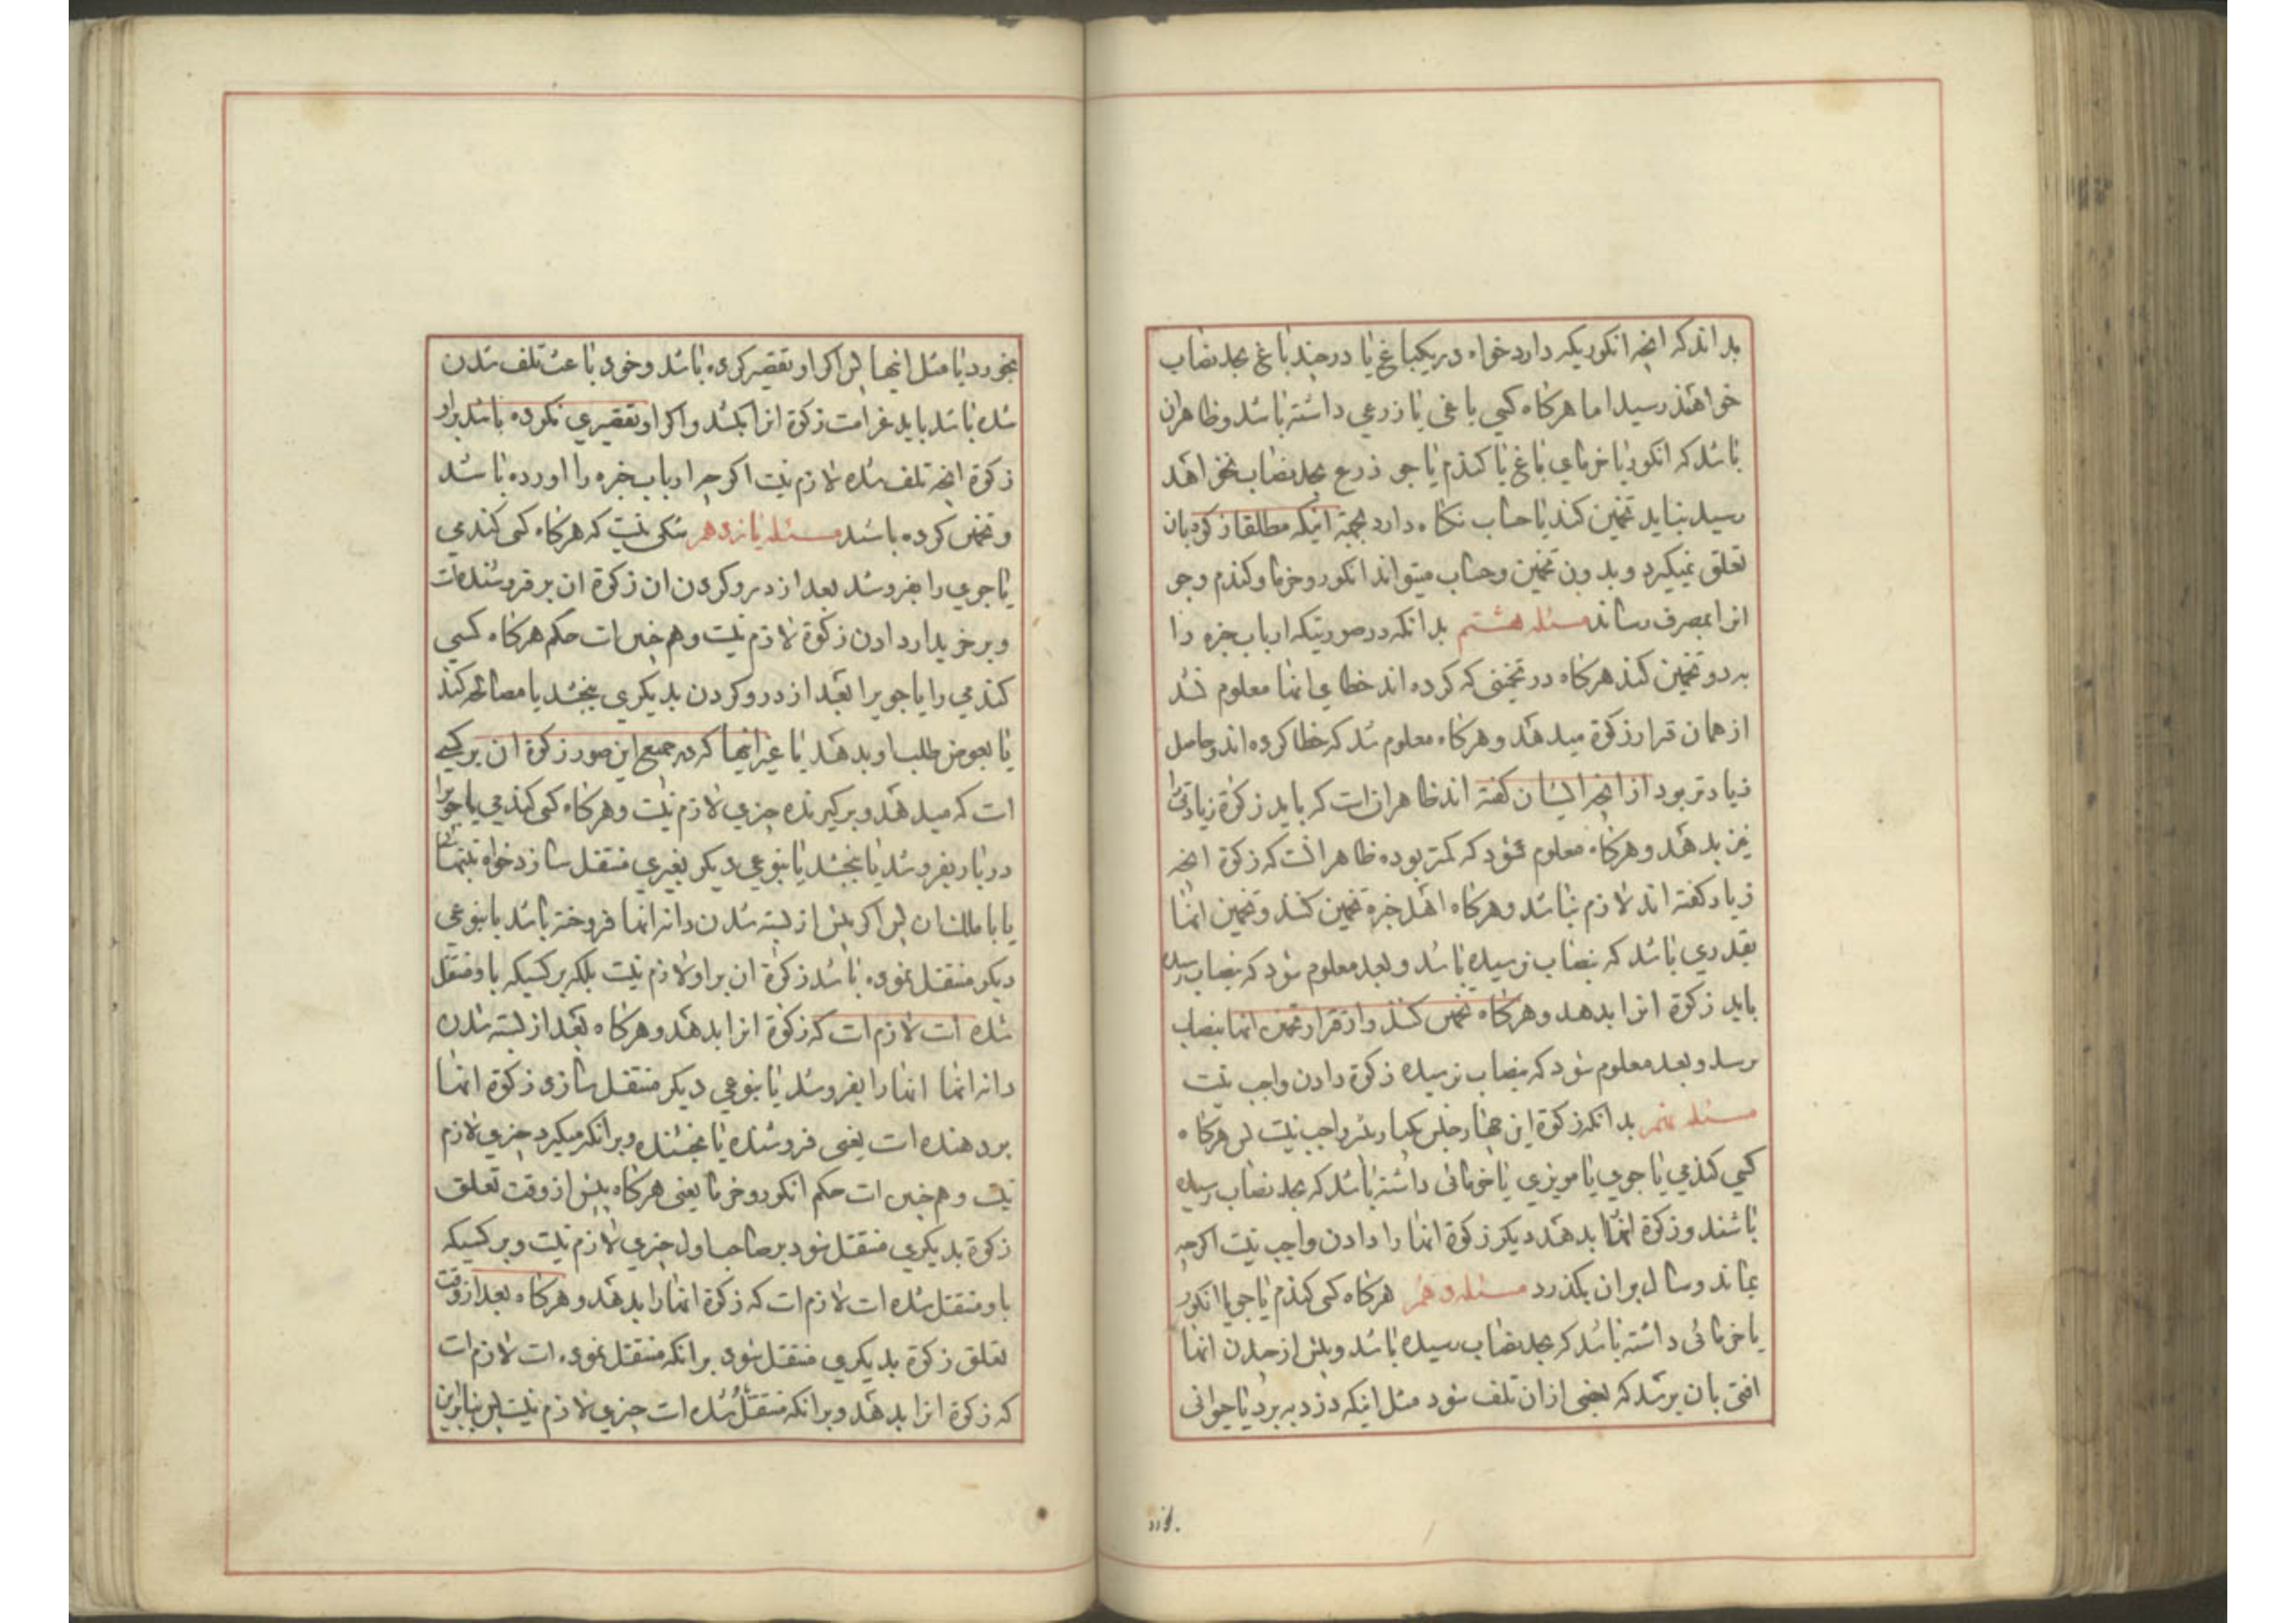 بداند که انچه انکوریکه دارد خواه در یکباغ یا در چند باغ بحد نصاب
خواهند رسید اما هرکاه کسی باغی یا زرعی داشته باشد و ظاهر ان
باشد که انکور یا خرمای باغ یا کندم یا جو زرع بحد نصاب نخواهد
رسید نباید تخمین کند یا حساب نکاه دارد بجهة اینکه مطلقا زکوة بان
تعلق نمیکیرد و بدون تخمین و حساب میتواند انکور و خرما و کندم و جو
انرا بمصرف رساند مسئله هشتم بدانکه در صورتیکه ارباب خبره را
به دو تخمین کنند هرکاه در تخمینی که کرده اند خطای انها معلوم نشد
از همان قرار زکوة میدهند و هرکاه معلوم شد که خطا کرده اند و حاصل
زیادتر بود از انچه ایشان کفته اند ظاهر ان است که باید زکوة زیادتی را
نیز بدهند و هرکاه معلوم شود که کمتر بوده ظاهر انست که زکوة انچه
زیاد کفته اند لازم نباشد و هرکاه اهل خبره تخمین کنند و تخمین انها
بقدری باشد که بنصاب نرسیده باشد و بعد معلوم شود که بنصاب رسیده
باید زکوة انرا بدهد و هرکاه تخمین کنند و از قرار تخمین انها بنصاب
برسد و بعد معلوم شود که بنصاب نرسیده زکوة دادن واجب نیست
مسئله نهم بدانکه زکوة این چهار جنس یکبار بیشتر واجب نیست پس هرکاه
کسی کندمی یا جوی یا مویزی یا خرمائی داشته باشد که بحد نصاب رسیده
باشند و زکوة انها بدهند دیکر زکوة انها را دادن واجب نیست اکرچه
بماند و سال بر ان بکذرد مسئله دهم هرکاه کسی کندم یا جو یا انکور
یا خرمائی داشته باشد که بحد نصاب رسیده باشد و پیش از چیدن انها
افتی بان برسد که بعضی از ان تلف شود مثل اینکه دزد به برد یا حیوانی
بخورد یا مثل اینها پس اکر او تقصیر کرده باشد و خود باعث تلف شدن
شده باشد باید غرامت زکوة انرا بکشد و اکر او تقصیری نکرده باشد بر او
زکوة انچه تلف شده لازم نیست اکرچه ارباب خبره را اورده باشد
و تخمین کرده باشد مسئله یازدهم شکی نیست که هرکاه کسی کندمی
یا جوی را بفروشد بعد از درو کردن ان زکوة ان بر فروشنده است
و بر خریدار دادن زکوة لازم نیست و هم چنین است حکم هرکاه کسی
کندمی را یا جویرا بعد از درو کردن بدیکری ببخشد یا مصالحه کند
یا بعوض طلب او بدهد یا غیر اینها که در جمیع این صور زکوة ان بر کسی
است که میدهد و بر کیرنده چیزی لازم نیست و هرکاه کسی کندمی یا جویرا
در بار بفروشد یا ببخشد یا بنوعی دیکر بغیری منتقل سازد خواه بتنهائی
یا با ملک ان پس اکر پیش از بسته شدن دانه انها فروخته باشد یا بنوعی
دیکر منتقل نموده باشد زکوة ان بر او لازم نیست بلکه بر کسیکه باو منتقل
شده است لازم است که زکوة انرا بدهد و هرکاه بعد از بسته شدن
دانه انها انها را بفروشد یا بنوعی دیکر منتقل سازد زکوة انها
بر دهنده است یعنی فروشنده یا بخشنده و بر انکه میکیرد چیزی لازم
نیست و هم چنین است حکم انکور و خرما یعنی هرکاه پیش از وقت تعلق
زکوة بدیکری منتقل شود بر صاحب اول چیزی لازم نیست و بر کسیکه
باو منتقل شده است لازم است که زکوة انها را بدهد و هرکاه بعد از وقت
تعلق زکوة بدیکری منتقل شود بر انکه منتقل نموده است لازم است
که زکوة انرا بدهد و بر انکه منتقل شده است چیزی لازم نیست پس بنابراین